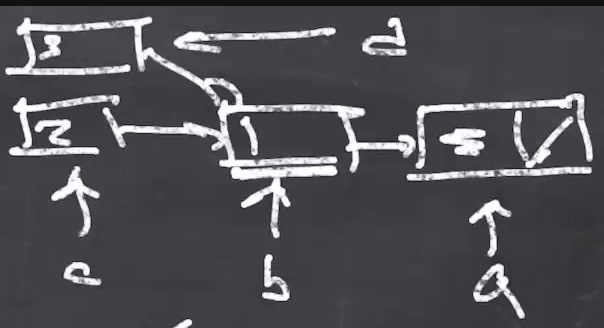 3 d
2 1 5
c b a